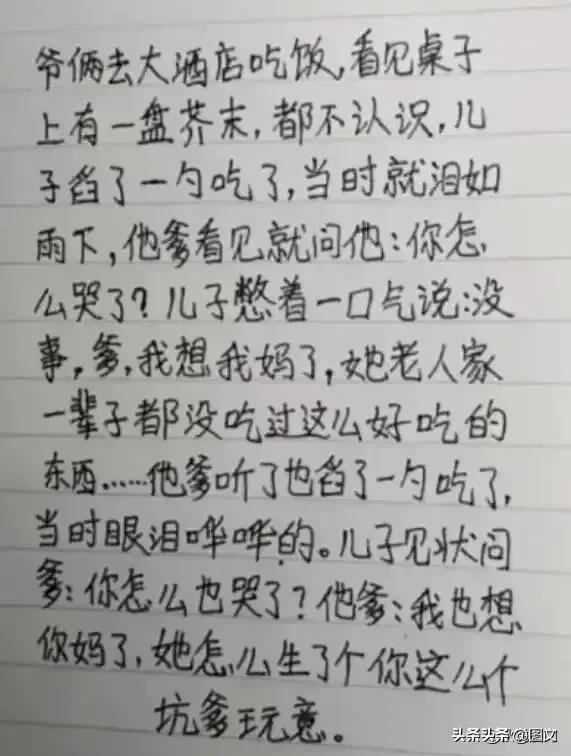 爷俩去大酒店吃饭,看见桌子
上有一盘芥末,都不认识,儿
子舀了一勺吃了,当时就泪如
雨下,他爹看见就问他:你怎
么哭了?儿子憋着一口气说:没
事,爹,我想我妈了,她老人家
一辈子都没吃过这么好吃的
东西……他爹听了也舀了一勺吃了,
当时眼泪哗哗的。儿子见状问
爹:你怎么也哭了?他爹:我也想
你妈了,她怎么生了个你这么个
坑爹玩意。
头条头条@图文